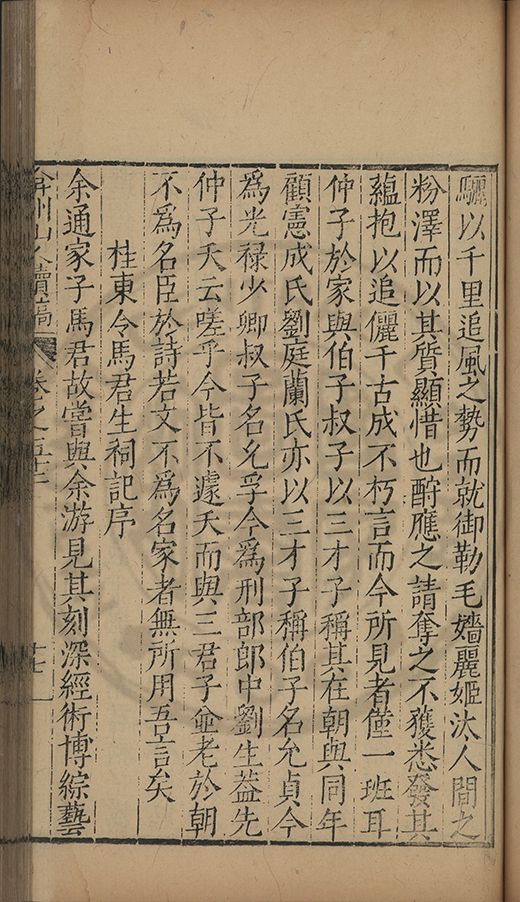 驪以千里追風之勢而就御勒毛嬙麗姬汰人間之
粉澤而以其質顯惜也酧應之請奪之不獲悉發其
蘊抱以追儷千古成不朽言而今所見者僅一班耳
仲子於家與伯子叔子以三才子稱其在朝與同年
顧憲成氏劉庭蘭氏亦以三才子稱伯子名允貞今
爲光禄少卿叔子名允孚今爲刑部郎中劉生葢先
仲子夭云嗟乎今皆不遽夭而與三君子並老於朝
不爲名臣於詩若文不爲名家者無所用吾言矣
桂東令馬君生祠記序
余通家子馬君故嘗與余游見其刻深經術博綜藝
弇州山人續稿 卷之五十二 十七